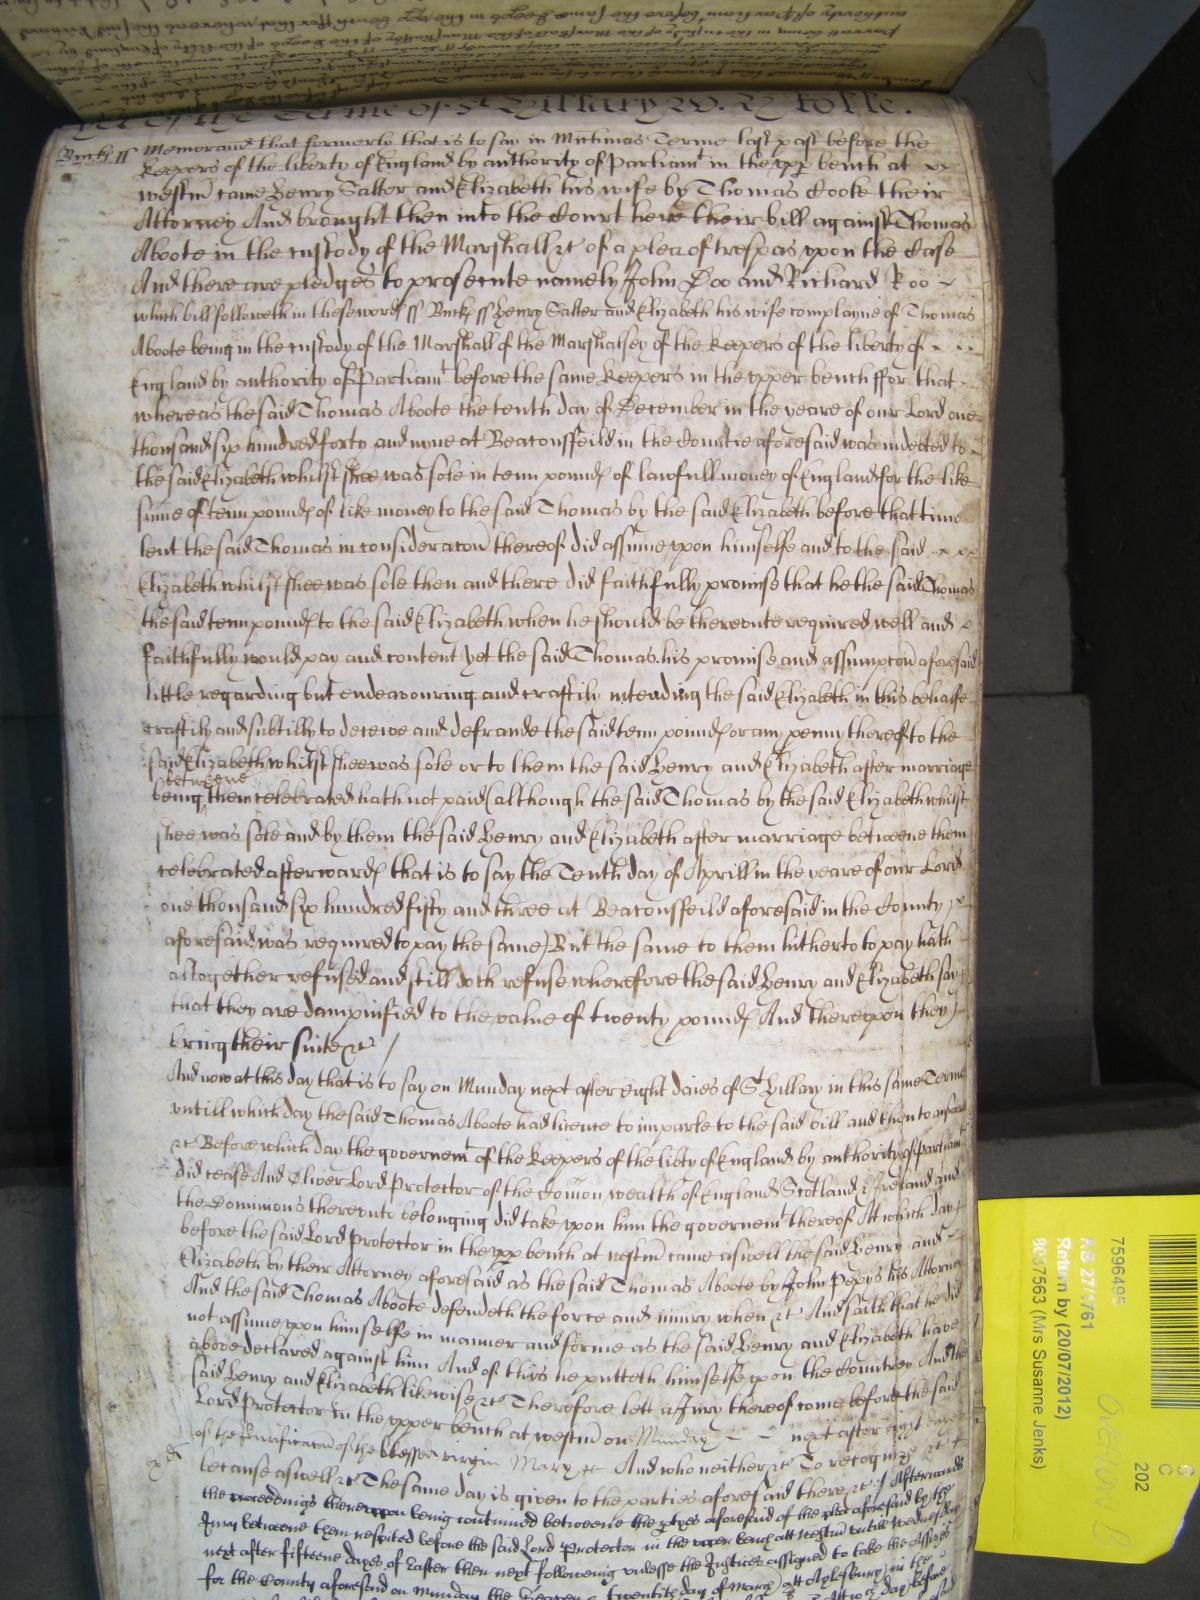 Terme of St Hillary
Bucks ss Memorand that formerly that is to say in Michmas Terme last past before the
Keepers of the liberty of England by authority of Parliamt in the upp bench at
westm came Henry Salter and Elizabeth his wife by Thomas Cooke their
Attorney And brought then into the Court here their bill against Thomas
Aboote in the custody of the Marshall &c of a plea of trespas upon the Case
And there are pledges to prosecute namely John Doo and Richard Roo
which bill followeth in these words ss Bucks ss Henry Salter and Elizabeth his wife complayne of Thomas
Aboote being in the custody of the Marshall of the Marshalsey of the Keepers of the liberty of
England by authority of Parliamt before the same Keepers in the upper bench ffor that
whereas the said Thomas Aboote the tenth day of December in the yeare of our Lord one
thousand six hundred forty and nyne at Beaconsfeild in the Countie aforesaid was indebted to
the said Elizabeth whilst shee was sole in tenn pounds of lawfull money of England for the like
summe of tenn pounds of like money to the said Thomas by the said Elizabeth before that time
lent the said Thomas in consideracon thereof did assume upon himselfe and to the said
Elizabeth whilst shee was sole then and there did faithfully promise that he the said Thomas
the said tenn pounds to the said Elizabeth when he should be thereunto required well and
faithfully would pay and content Yet the said Thomas his promise and assumpcon aforesaid
little regarding but endeavouring and craftily intending the said Elizabeth in this behalfe
craftily and subtilly to deceive and defraude the said tenn pounds or any penny thereof to the
said Elizabeth whilst shee was sole or to them the said Henry and Elizabeth after marriage
betweene
being them celebrated hath not paid (although the said Thomas by the said Elizabeth whilst
shee was sole and by them the said Henry and Elizabeth after marriage betweene them
celebrated afterwards that is to say the Tenth day of Aprill in the yeare of our Lord
one thousand six hundred fifty and three at Beaconsfeild aforesaid in the County
aforesaid was required to pay the same) But the same to them hitherto to pay hath
altogether refused and still doth refuse wherefore the said Henry and Elizabeth say
that they are dampnified to the value of twenty pounds And thereupon they
bring their suite &c /
And now at this day that is to say on Munday next after eight daies of St Hillary in this same Terme
untill which day the said Thomas Aboote had licence to imparle to the said bill and then to answere
&c Before which day the governemt of the Keepers of the libty of England by authority of Parliamt
did cease And Oliver Lord Protector of the Comon wealth of England Scotland & Ireland and
the Dominions thereunto belonging did take upon him the governemt thereof At which day
before the said Lord Protector in the upp bench at westm came aswell the said Henry and
Elizabeth by their Attorney aforesaid as the said Thomas Aboote by John Pepys his Attorney
And the said Thomas Aboote defendeth the force and iniury when &c And saith that he did
not assume upon himselfe in manner and forme as the said Henry and Elizabeth have
above declared against him And of this he putteth himselfe upon the Countrey And the
said Henry and Elizabeth likewise &c Therefore lett a Jury thereof come before the said
Lord Protector in the upper bench at westm on Munday next after eight dayes
of the Purificacon of the blessed virgin Mary &c And who neither &c To recognize &c
because aswell &c The same day is given to the parties aforesaid there &c Afterwards
the proceedings thereupon being continued betweene the ptyes aforesaid of the plea aforesaid by the
Jury betweene them respited before the said Lord Protector in the upper bench att Westm untill Wednesday
next after fifteene dayes of Easter then next following unlesse the Justices assigned to take the Assizes
for the County aforesaid on Munday the twentith day of March att Aylesbury in the
7596495
ASS 27/1761
Return by (20/07/2012)
8037563 (Mrs Susanne Jenks)
202